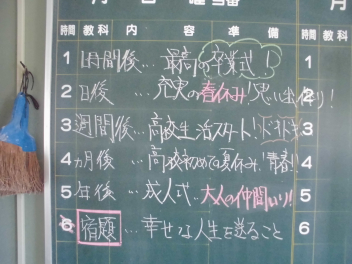 月 曜 当番 月
時間 教科 内 容 準 備 時間 教科
1 時間後… 最高の卒業式! 1
2 日後 … 充実の春休み!思い出作り! 2
3 週間後… 高校生活スタート!ドキドキ 3
4 ヵ月後 … 高校初めての夏休み!青春! 4
5 年後 … 成人式・大人の仲間いり! 5
6 宿題 … 幸せな人生を送ること 6